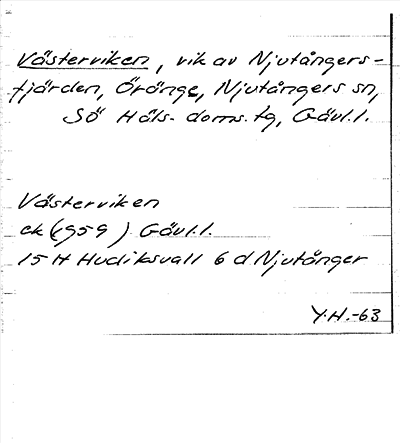 Västerviken, vik av Njutångers-
fjärden, Öränge, Njutångers sn,
Sö Häls. doms. tg, Gävl.l.
Västerviken
ek (959) Gävl.l.
15 H Hudiksvall 6 d Njutånger
Y.H.-63